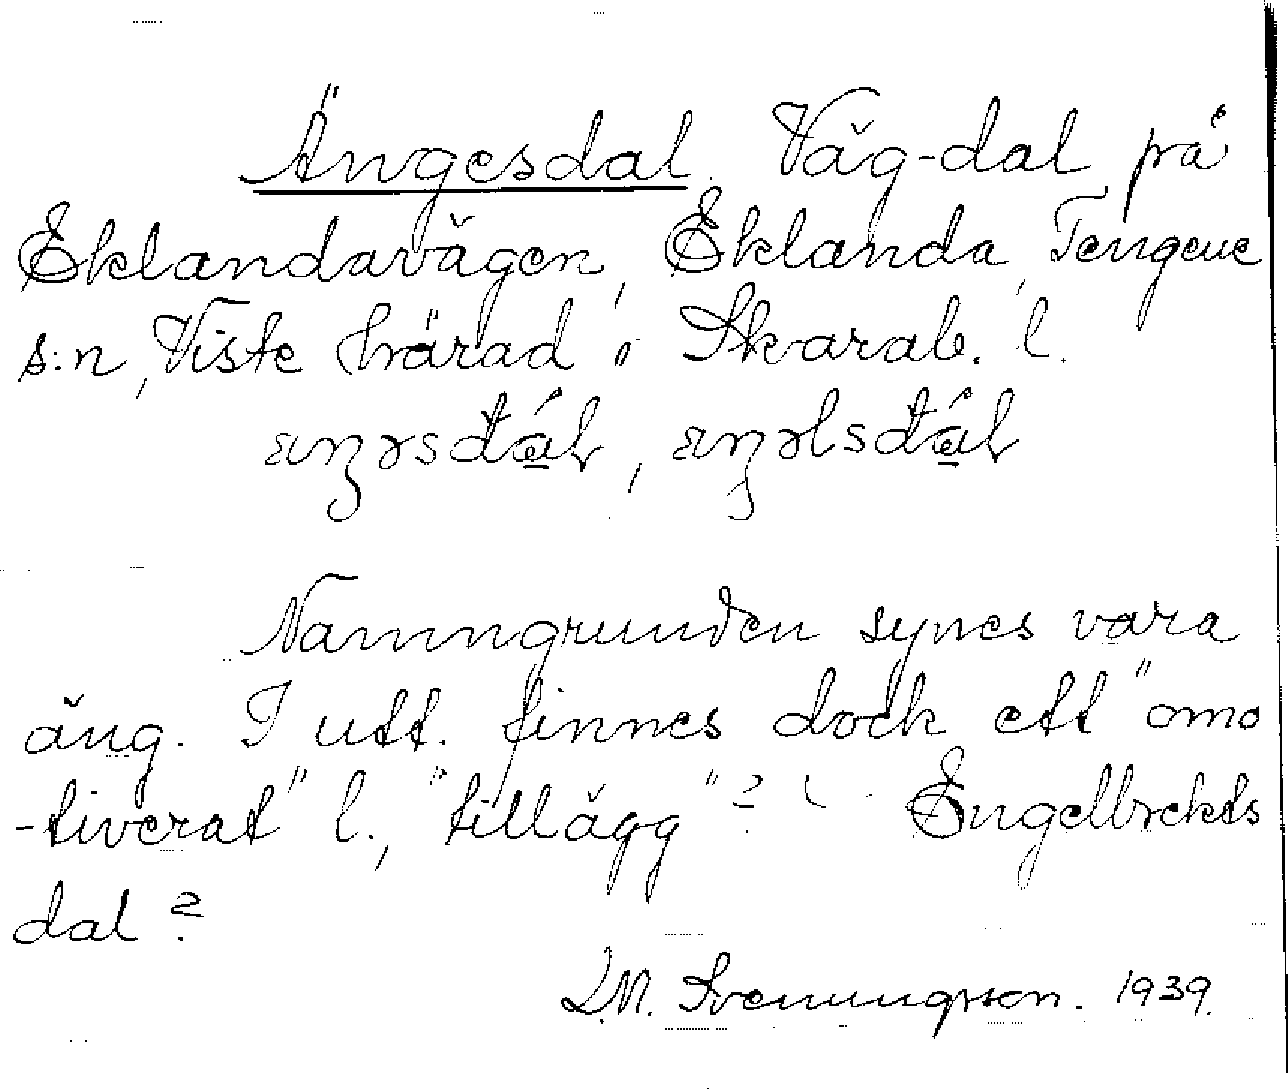 Ängesdal. Väg-dal på
Eklandavägen, Eklanda, Tengene
s:n, Viste härad i Skarab. l.
Namngrunden synes vara
äng. I utt. finnes dock ett "omo
-tiverat" l., "tillägg"? Engelbrekts
dal?
L.M. Svenungsson. 1939.